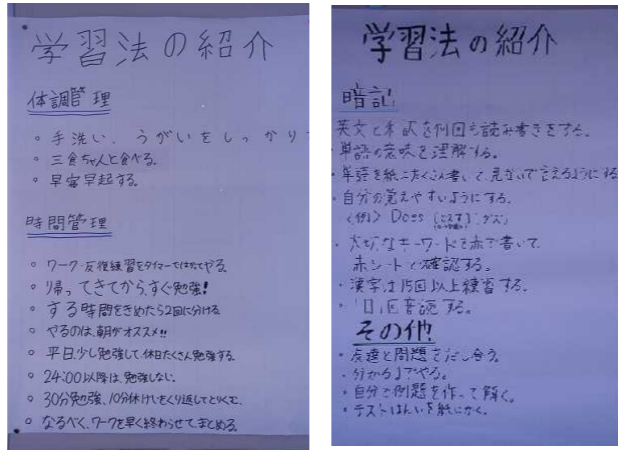 学習法の紹介
体調管理
。手洗い、うがいをしっかり
。三食ちゃんと食べる。
。早寝早起する。
時間管理
。ワーク・反復練習をタイマーではかってやる。
。帰ってきてから、すぐ勉強!
。する時間をきめたら2回に分ける
。やるのは、朝がオススメ!!
。平日少し勉強して、休日たくさん勉強する。
。24:00以降は、勉強しない。
。30分勉強、10分休けいをくり返してとりくむ。
。なるべく、ワークを早く終わらせて、まとめる。
学習法の紹介
暗記
英文と本訳を何回も読み書きをする。
・単語の意味を理解する。
・単語を紙にたくさん書いて、見ないで言えるようにする
・自分の覚えやすいようにする。
〈例〉Does
・大切なキーワードを赤で書いて、
赤シートで確認する。
・漢字は15回以上練習する。
・1日1回音読する。
その他!
・友達と問題をだし合う。
・分かるまでやる。
・自分で例題を作って解く。
・テストはんいを紙にかく。